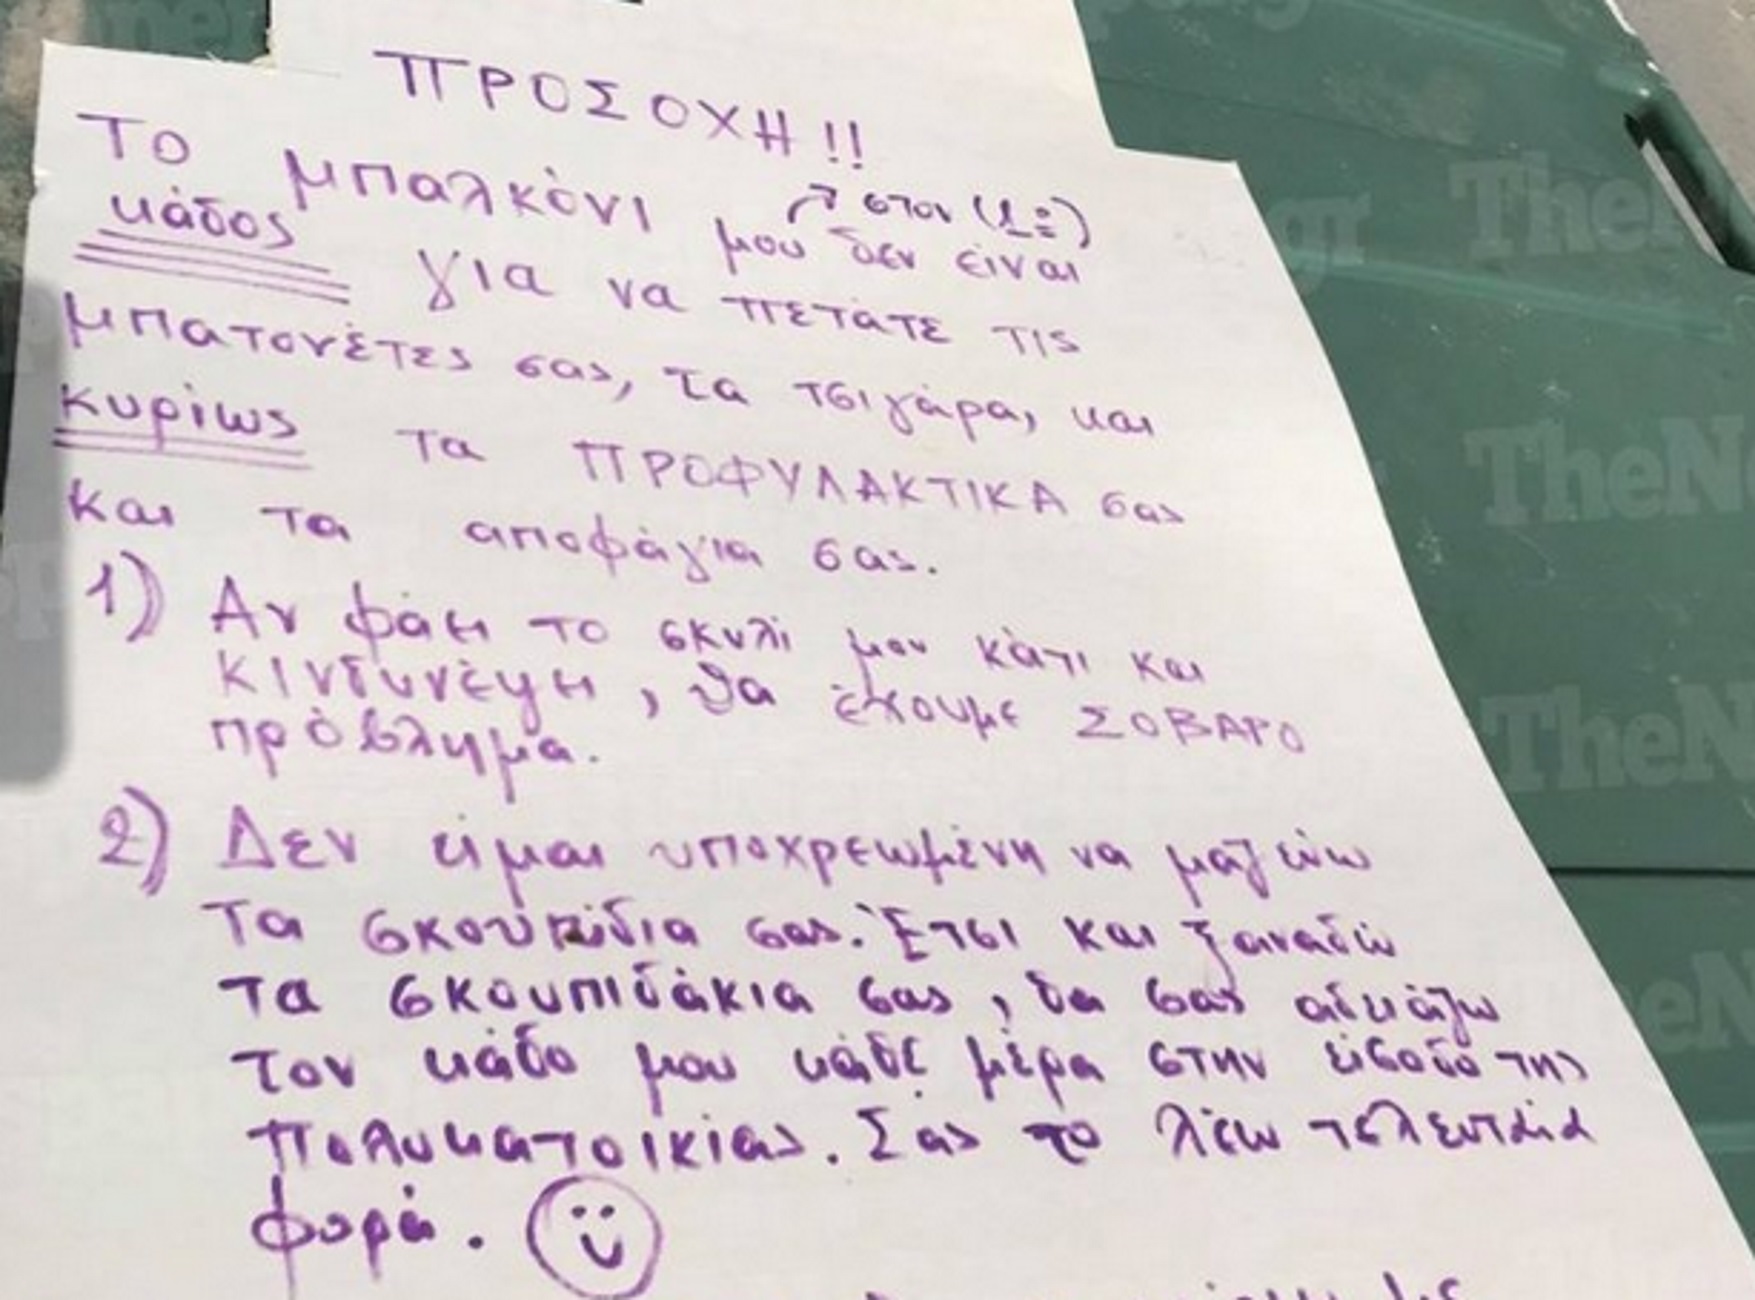 ΠΡΟΣΟΧΗ!!
Το μπαλκόνι μου δεν είναι
↗ στον (1ο)
κάδος για να πετάτε τις
μπατονέτες σας, τα τσιγάρα, και
κυρίως τα ΠΡΟΦΥΛΑΚΤΙΚΑ σας
και τα αποφάγια σας.
1) Αν φάει το σκυλί μου κάτι και
κινδυνέψει, θα έχουμε ΣΟΒΑΡΟ
πρόβλημα.
2) Δεν είμαι υποχρεωμένη να μαζεύω
τα σκουπίδια σας. Έτσι και ξαναδώ
τα σκουπιδάκια σας, θα σας αδειάζω
τον κάδο μου κάθε μέρα στην είσοδο της
πολυκατοικίας. Σας το λέω τελευταία
φορά.